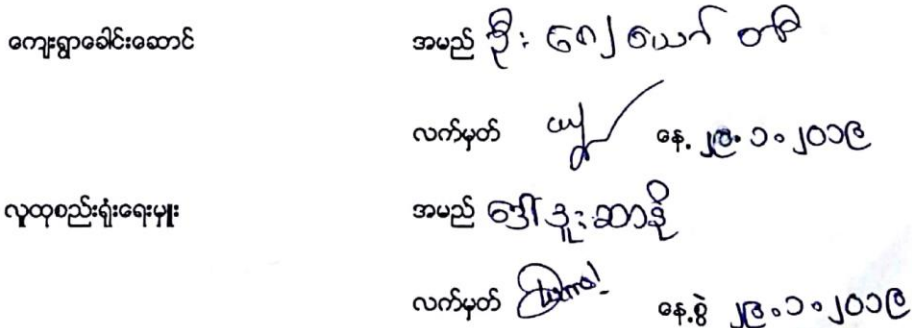 ကျေးရွာခေါင်းဆောင် အမည် ဦး
လက်မှတ် နေ့ ၂၉.၁.၂၀၁၉
လူထုစည်းရုံးရေးမှူး အမည် ဒေါ် ဒူးဆာနို
လက်မှတ် နေ့စွဲ ၂၉.၁.၂၀၁၉